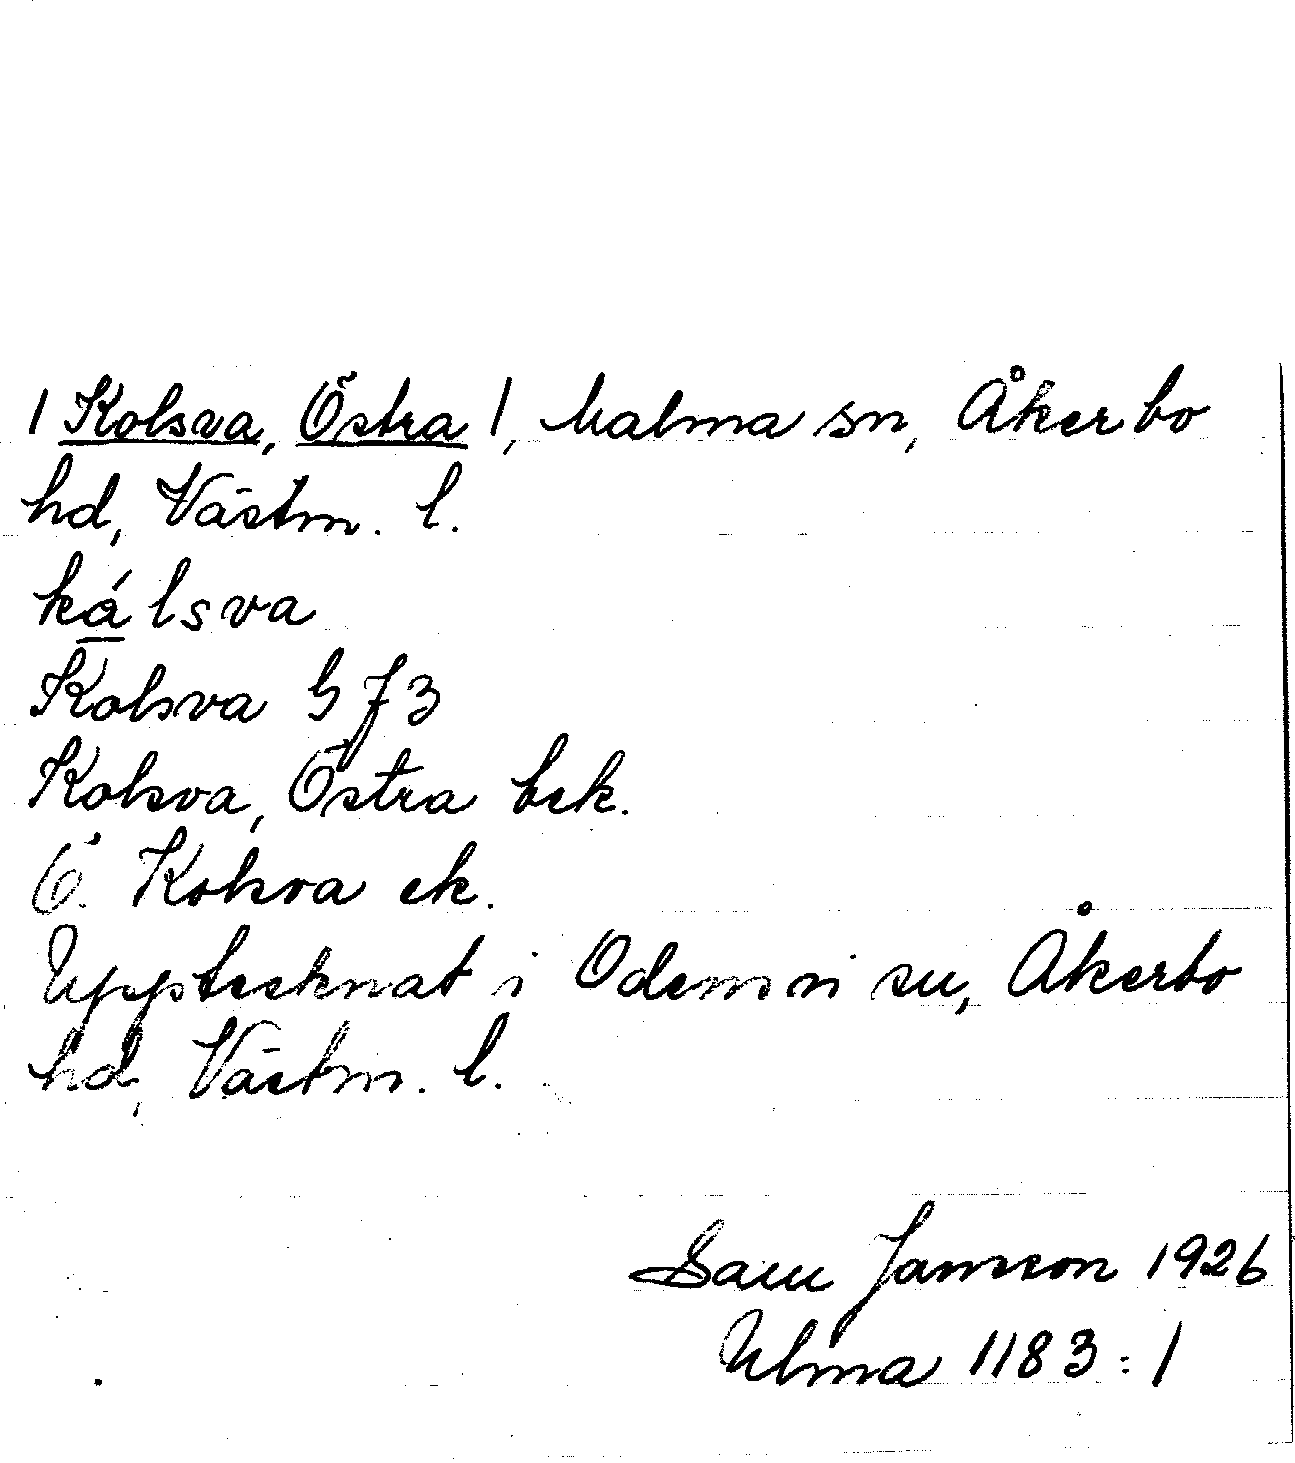 / Kolsva, Östra /, Malma sn, Åkerbo
hd, Västm. l.
kálsva
Kolsva GJ3
Kolsva, Östra bek.
Ö. Kolsva ek.
Upptecknat i Odensvi sn, Åkerbo
hd, Västm. l.
Sam Jansson 1926
Ulma 1183:1